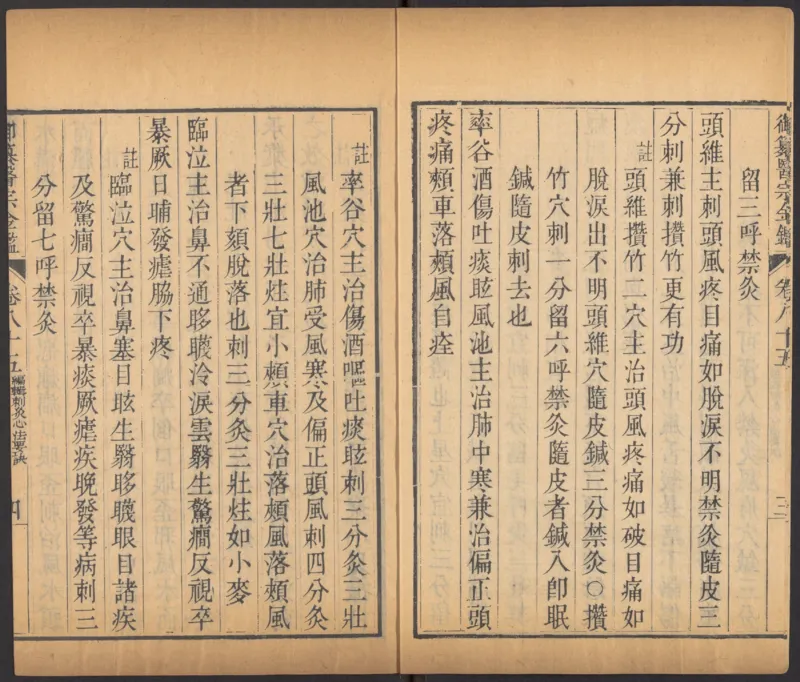 御纂醫宗金鑑 卷八十五 三
留三呼禁灸
頭維主刺頭風疼目痛如脫淚不明禁灸隨皮三
分刺兼刺攢竹更有功
註頭維攢竹二穴主治頭風疼痛如破目痛如
脫淚出不明頭維穴隨皮鍼三分禁灸○攢
竹穴刺一分留六呼禁灸隨皮者鍼入卽眠
鍼隨皮刺去也
率谷酒傷吐痰眩風池主治肺中寒兼治偏正頭
疼痛頰車落頰風自痊
註率谷穴主治傷酒嘔吐痰眩刺三分灸三壯
風池穴治肺受風寒及偏正頭風刺四分灸
三壯七壯炷宜小頰車穴治落頰風落頰風
者下頦脫落也刺三分灸三壯炷如小麥
臨泣主治鼻不通眵䁾泠淚雲翳生驚癎反視卒
暴厥日晡發瘧脇下疼
註臨泣穴主治鼻塞目眩生翳眵䁾眼目諸疾
及驚癎反視卒暴痰厥瘧疾晚發等病刺三
分留七呼禁灸
御纂醫宗金鑑 卷八十五 編輯刺灸心法要訣 四